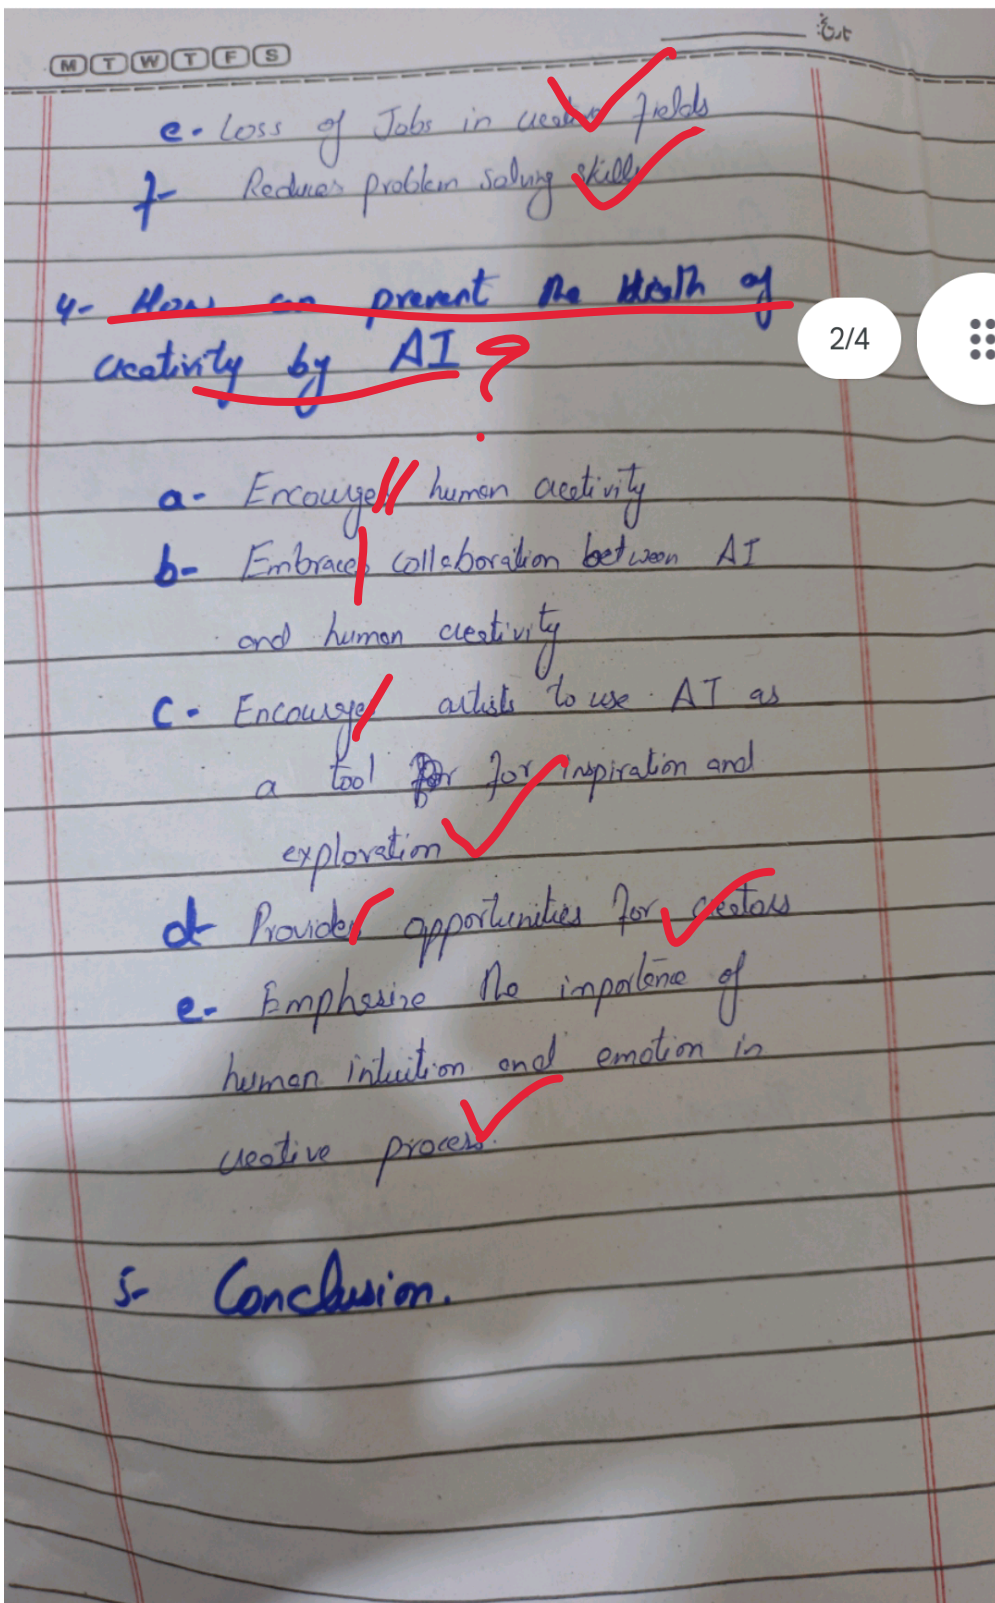 M T W T F S
تاریخ
e- Loss of Jobs in creative fields
f- Reduces problem solving skills
4- How can prevent the death of
creativity by AI ?
2/4
a- Encourges human creativity
b- Embraces collaboration between AI
and human creativity
c- Encourges artists to use AI as
a tool for for inspiration and
exploration
d- Provides opportunities for creators
e- Emphasize the importance of
human intuition and emotion in
creative process.
5- Conclusion.